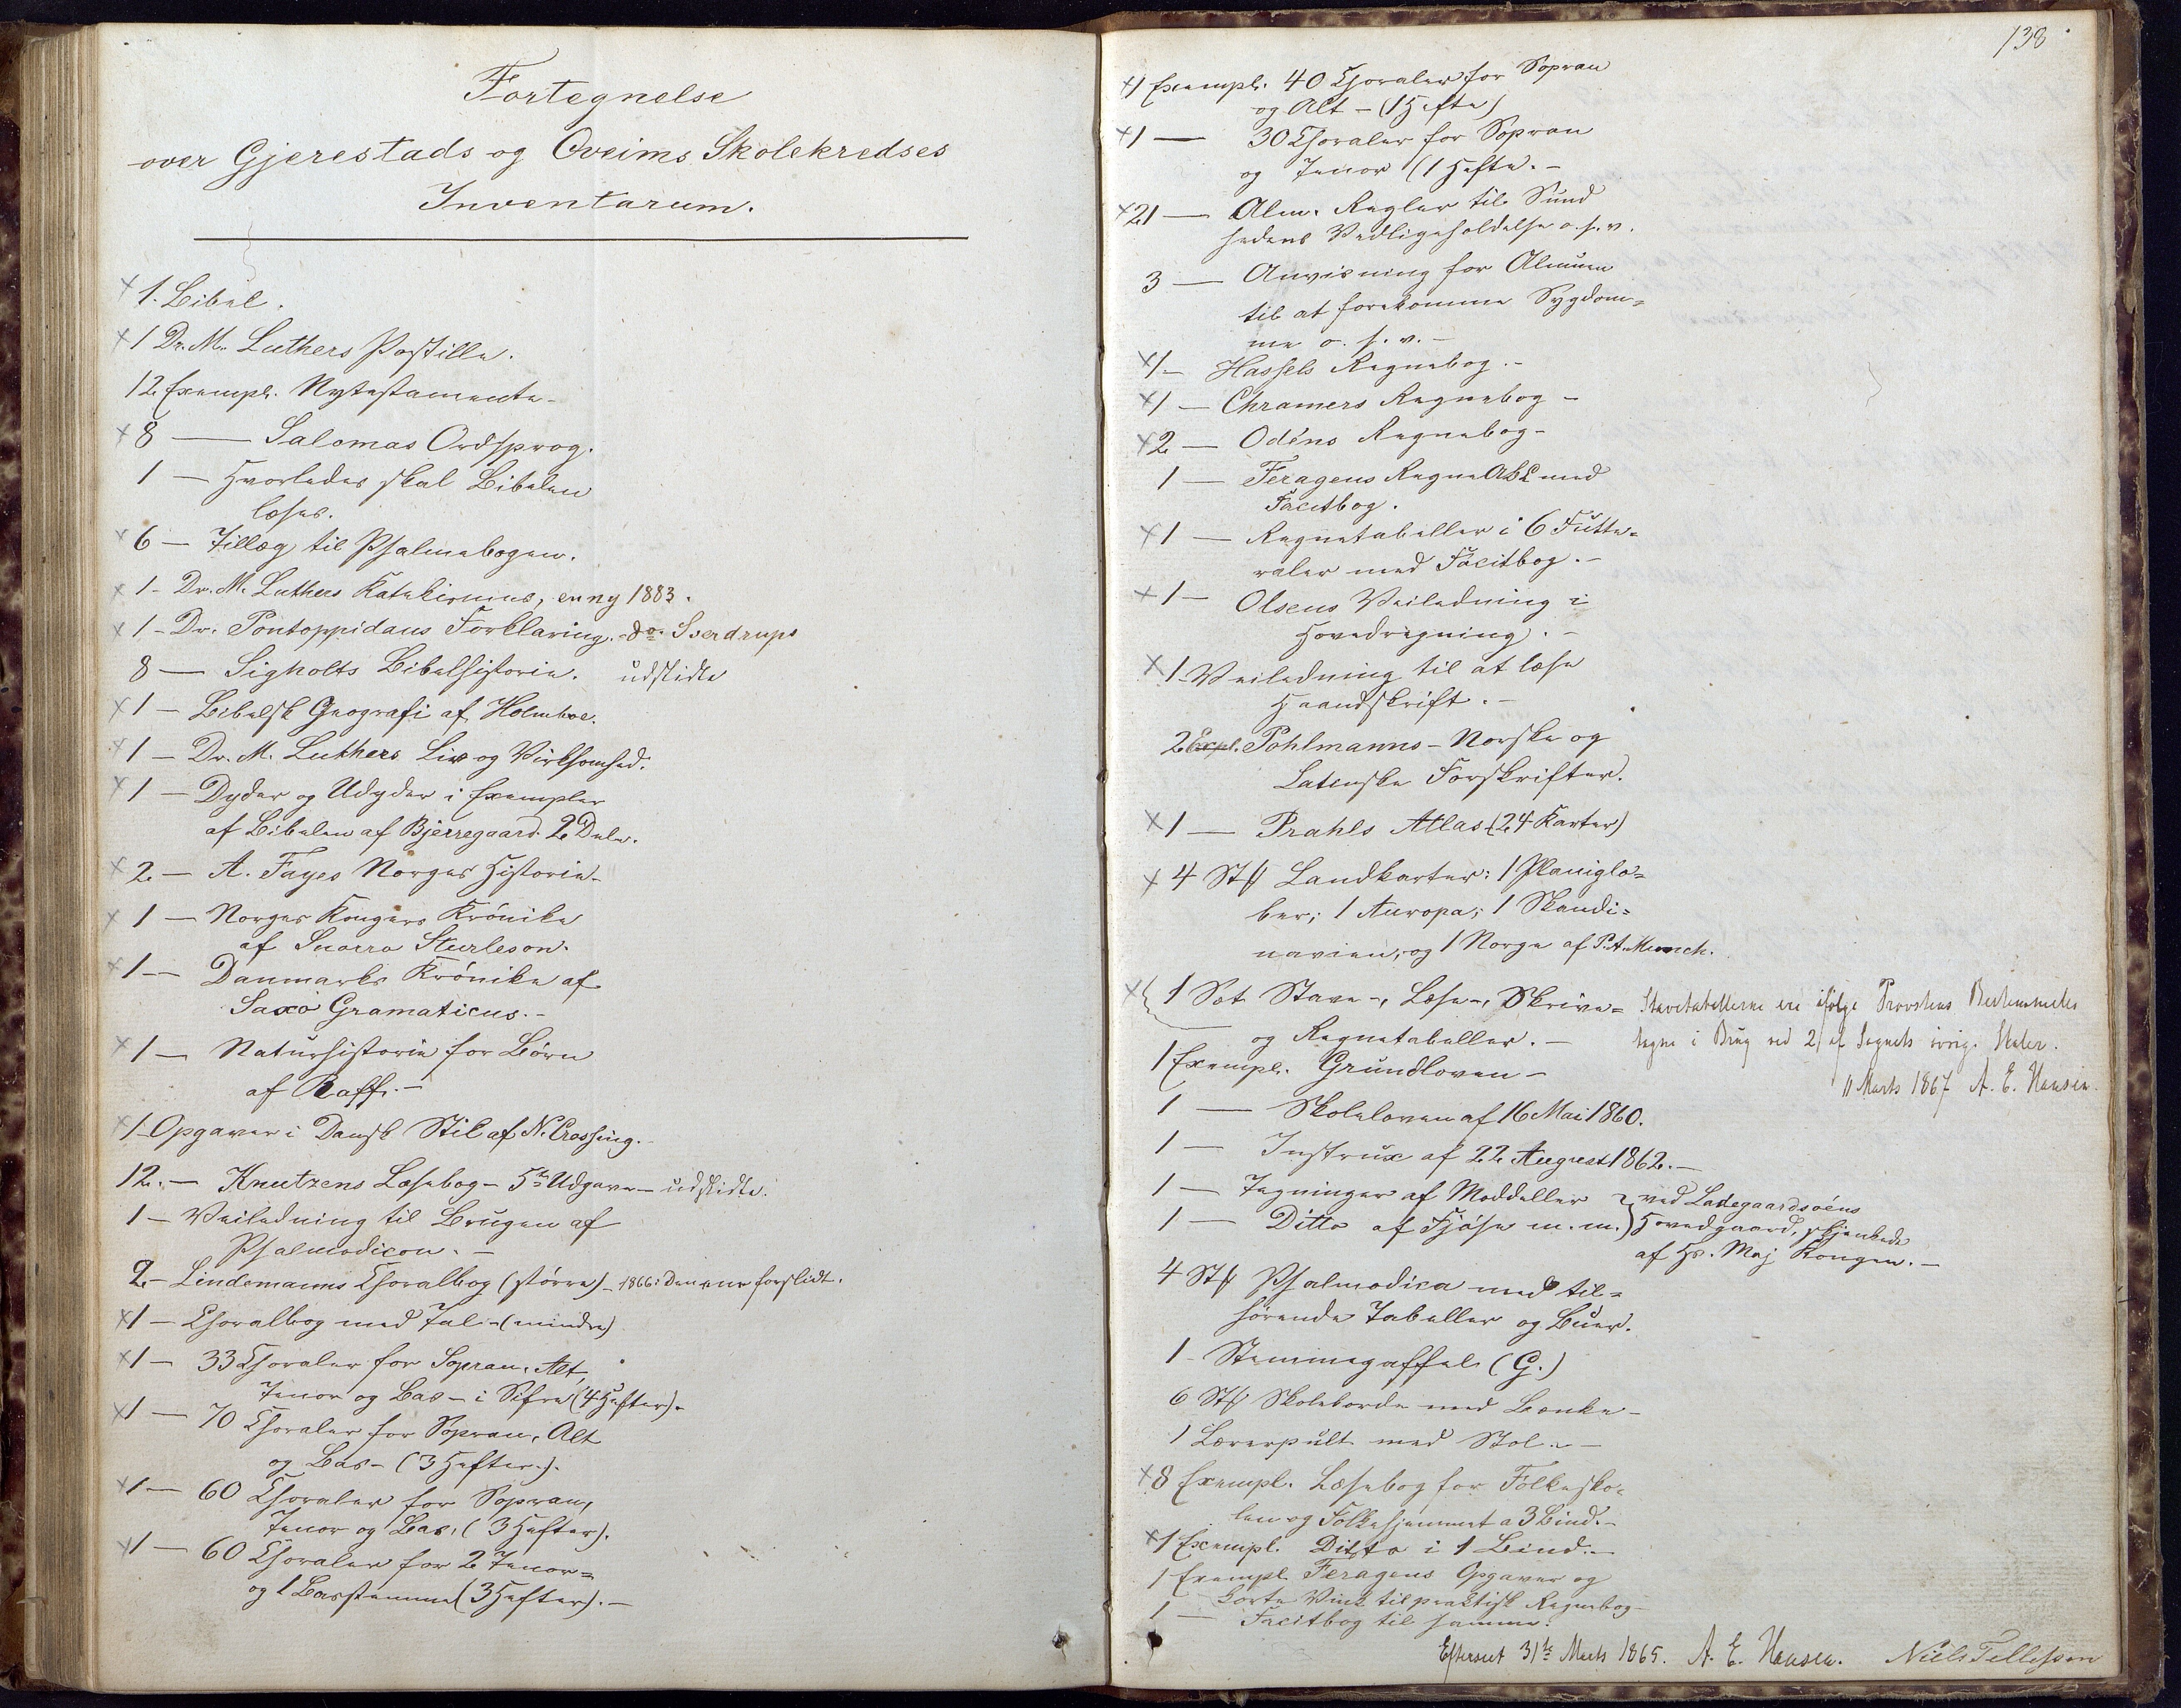 Fortegnelse
over Gjerestads og Qveims Skolekredses
Inventarum.
x 1. Bibel.
x 1 Dr. M. Luthers Postille.
12 Exempl. Nytestamente-
x 8 — Salomas Ordsprog.
1 — Hvorledes skal Bibelen
læses.
x 6 — Tillæg til Psalmebogen.
x 1 - Dr. M. Luthers Katekismus, en ny 1883.
x 1 - Dr. Pontoppidans Forklaring. - do Sverdrups
8 — Sigholts Bibelhistorie. udslidte
x 1 — Bibelsk Geografi af Holmboe.
x 1 — Dr. M. Luthers Liv og Virksomhed.
x 1 — Dyder og Udyder i Exempler
af Bibelen af Bjerregaard 2 Dele.
x 2 — A. Fayes Norges Historie-
x 1 — Norges Kongers Krónike
af Snorro Sturleson.
x 1 — Danmarks Krónike af
Saxo Gramaticus. -
x 1 — Naturhistorie for Börn
af Raff. -
x 1 Opgaver i Dansk Stil af N. Crossing. -
12. — Knutzens Læsebog - 5te Udgave - udslidte.
1 — Veiledning til Brugen af
Psalmodicon. -
2 - Lindemanns Choralbog (större) - 1866: Den ene forslidt.
x 1 — Choralbog med Tal - (mindre)
x 1 — 33 Choraler for Sopran, Alt,
Tenor og Bas - i Sifre (4 Hefter).
x 1 — 70 Choraler for Sopran, Alt
og Bas - (3 Hefter).
x 1 — 60 Choraler for Sopran,
Tenor og Bas. (3 Hefter).
x 1 — 60 Choraler for 2 Tenor=
og 1 Basstemme (3 Hefter). -
138
x 1 Exempl. 40 Choraler for Sopran
og Alt - (1 Hefte)
x 1 — 30 Choraler for Sopran
og Tenor (1 Hefte. -
x 21 — Alm. Regler til Sund
hedens Vedligeholdelse o. s. v.
3 — Anvisning for Almuen
til at forekomme Sygdom=
me o. s. v. -
x 1 - Hassels Regnebog. -
x 1 — Chramers Regnebog -
x 2 — Odéns Regnebog -
1 — Feragens Regne ABC med
Facitbog.
x 1 — Regnetabeller i 6 Futte=
raler med Facitbog. -
x 1 — Olsens Veiledning i
Hovedregning. -
x 1 - Veiledning til at læse
Haandskrift. -
2 Expl. Pohlmanns - Norske og
Latinske Forskrifter.
x 1 — Prahls Atlas (24 Karter)
x 4 Stk Landkarter: 1 Planiglo=
ber; 1 Auropa; 1 Skandi=
navien; og 1 Norge af P. A. Munch.
x 1 Sæt Stave-, Læse-, Skrive=
og Regnetabeller. -
Stavetabellerne ere ifølge Provstens Bestemmelse
tagne i Brug ved 2 af Sognets øvrige Skoler.
11 Marts 1867 A. E. Hansen.
1 Exempl. Grundloven -
1 — Skoleloven af 16 Mai 1860.
1 — Instrux af 22 August 1862. -
1 — Tegninger af Moddeller
1 — Ditto af Fjöse m. m.
ved Ladegaardsöens
Hovedgaard, skjenkede
af Hs. Maj Kongen. -
4 Stk Psalmodica med til=
hörende Tabeller og Buer.
1 - Stemmegaffel (G.)
6 Stk Skoleborde med Bænke -
1 Lærerpult med Stol. -
x 8 Exempl. Læsebog for Folkesko=
len og Folkehjemmet a 3 Bind. -
x 1 Exempl. Ditto i 1 Bind. -
1 Exempl Feragens Opgaver og
korte Vink til praktisk Regnebog -
1 — Facitbog til samme.
Efterseet 31te Marts 1865. A. E. Hansen. Niels Tellefsen